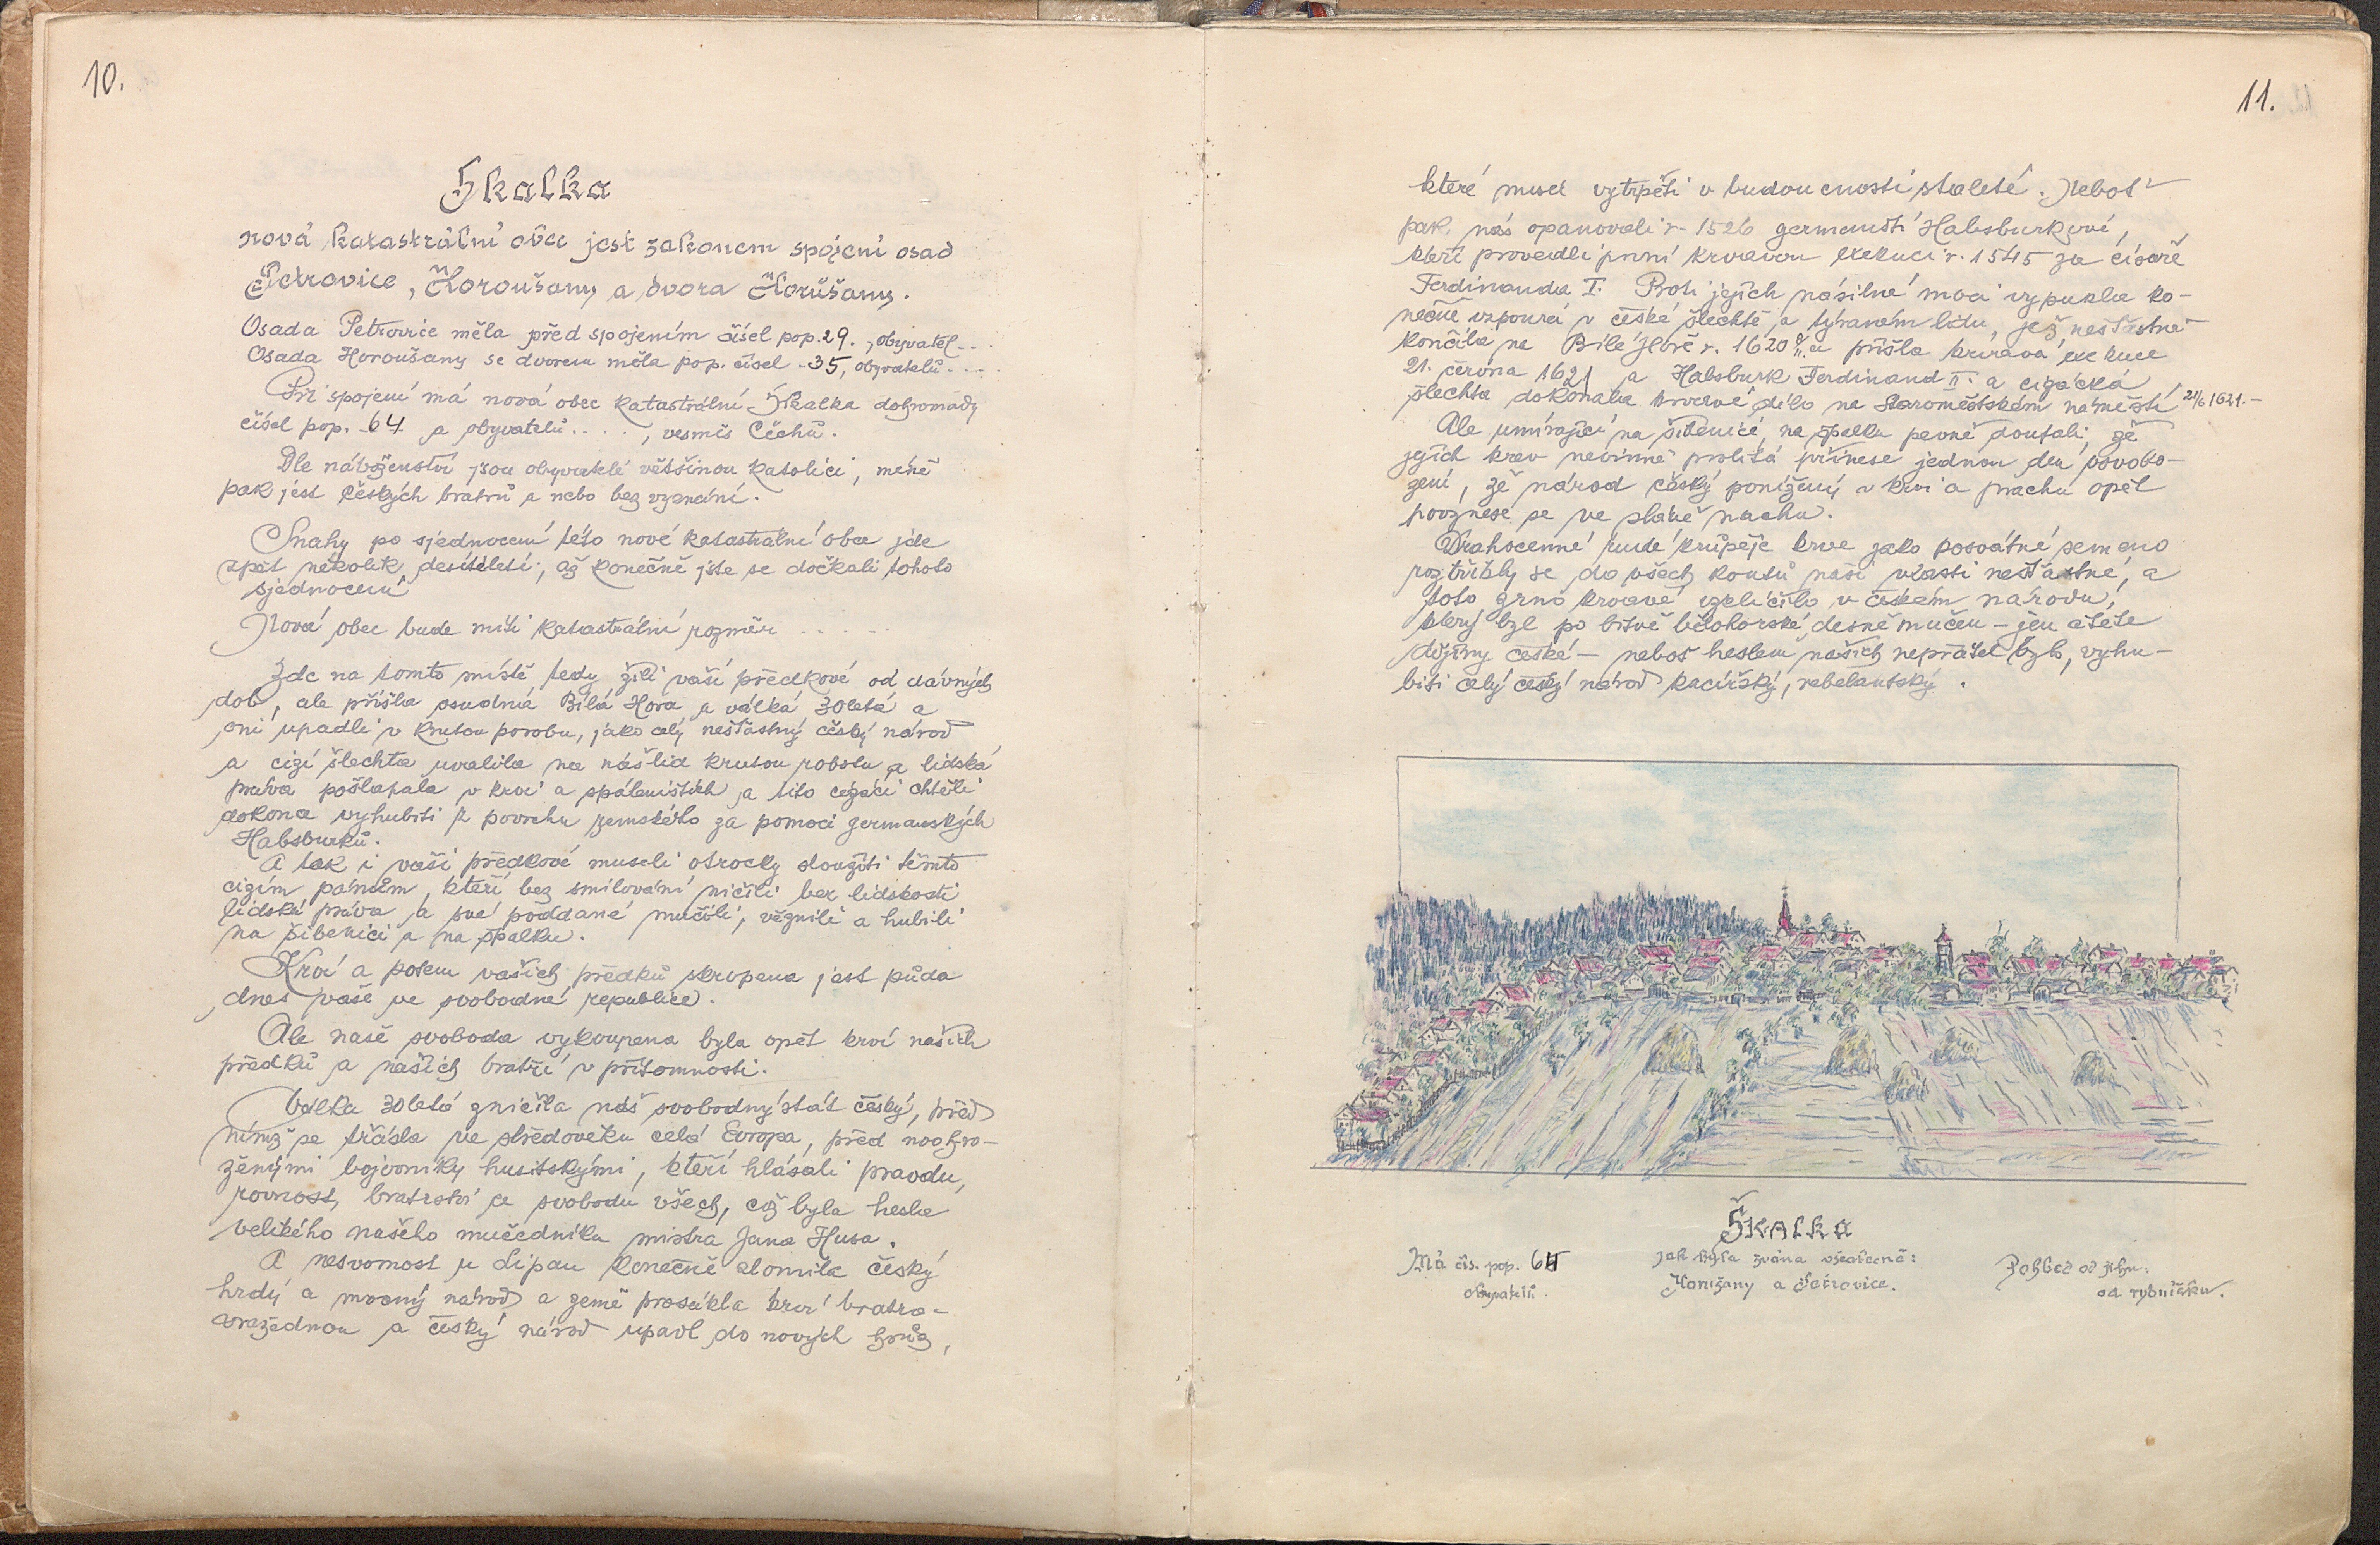 10.
Skalka
nová katastrální obec jest zakonem spojení osad
Petrovice, Horoušany a dvora Horušany.
Osada Petrovice měla před spojením čísel pop. 29., obyvatel...
Osada Horoušany se dvorem měla pop. čísel -35, obyvatelů....
Při spojení má nová obec katastrální Skalka dohromady
čísel pop. 64 a obyvatelů...., vesměs Čechů.
Dle náboženství jsou obyvatelé většinou katolíci, méně
pak jest českých bratrů a nebo bez vyznání.
Snahy po sjednocení této nové katastrální obce jde
zpět několik desítiletí, až konečně jste se dočkali tohoto
sjednocení
Nová obec bude míti katastrální rozměr .....
Zde na tomto místě tedy žili vaší předkové od dávných
dob, ale přišla osudná Bílá Hora a válka 30letá a
oni upadli v krutou porobu, jako celý nešťastný český národ
a cizí šlechta uvalila na náš lid krutou robotu a lidská
práva pošlapala v krvi a spáleništích a tito cizáci chtěli
dokonce vyhubiti z povrchu zemského za pomoci germanských
Habsburků.
A tak i vaši předkové museli otrocky sloužiti těmto
cizím pánům, kteří bez smilování ničili bez lidskosti
lidská práva a své poddané mučili, věznili a hubili
na šibenici a na špalku.
Krví a potem vašich předků skropena jest půda
dnes vaše ve svobodné republice.
Ale naše svoboda vykoupena byla opět krví našich
předků a našich bratří v přítomnosti.
Válka 30letá zničila náš svobodný stát český, před
nímž se třásla ve středověku celá Evropa, před noohro-
ženými bojovníky husitskými, kteří hlásali pravdu,
rovnost, bratrství a svobodu všech, což byla hesla
velikého našeho mučedníka mistra Jana Husa.
A nesvornost u Lipan konečně zlomila český
hrdý a mocný národ a země prosákla krví bratro-
vražednou a český národ upadl do nových hrůz,
11.
které musel vytrpěti v budoucnosti staleté. Neboť
pak nás opanovali r. 1526 germanští Habsburkové,
kteří provedli první krvavou exekuci r. 1545 za císaře
Ferdinanda I. Proti jejich násilné moci vypukla ko-
nečně vzpoura v české šlechtě a týraném lidu, jež nešťastně
končila na Bílé Hoře r. 1620 8/11. a přišla krvavá exekuce
21. června 1621 a Habsburk Ferdinand II. a cizácká
šlechta dokonala krvavé dílo na Staroměstském náměstí 21/6 1621.-
Ale umírající na šibenici, na špalku pevně doufali, že
jejich krev nevinně prolitá přinese jednou den osvobo-
zení, že národ český ponížený v krvi a prachu opět
povznese se ve slávě nachu.
Drahocenné rudé krůpěje krve jako posvátné semeno
roztříštily se do všech koutů naší vlasti nešťastné, a
toto zrno krvavé vzklíčilo v českém národu,
který byl po bitvě bělohorské děsně mučen - jen čtěte
dějiny české - neboť heslem našich nepřátel bylo, vyhu-
biti celý český národ kacířský, rebelantský.
SKALKA
Má čís. pop. 64
obyvatelů.
jak byla zvána všeobecně:
Horušany a Petrovice.
Pohled od jihu:
od rybníčku.